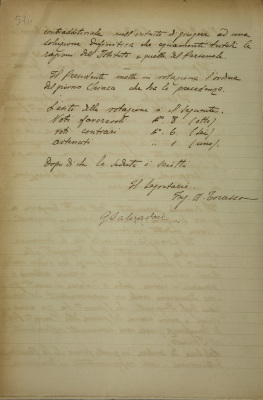 contradditoriale nell'intento di giungere ad una
soluzione definitiva che equamente tuteli le
ragioni dell'Istituto e quelle del Personale.
Il Presidente mette in votazione l'ordine
del giorno che ha la precedenza.
L'esito della votazione è il seguente:
Voti favorevoli N° 8 (otto)
voti contrari N° 6 (sei)
astenuti " 1 (uno).
Dopo di che la seduta è sciolta
Il Segretario